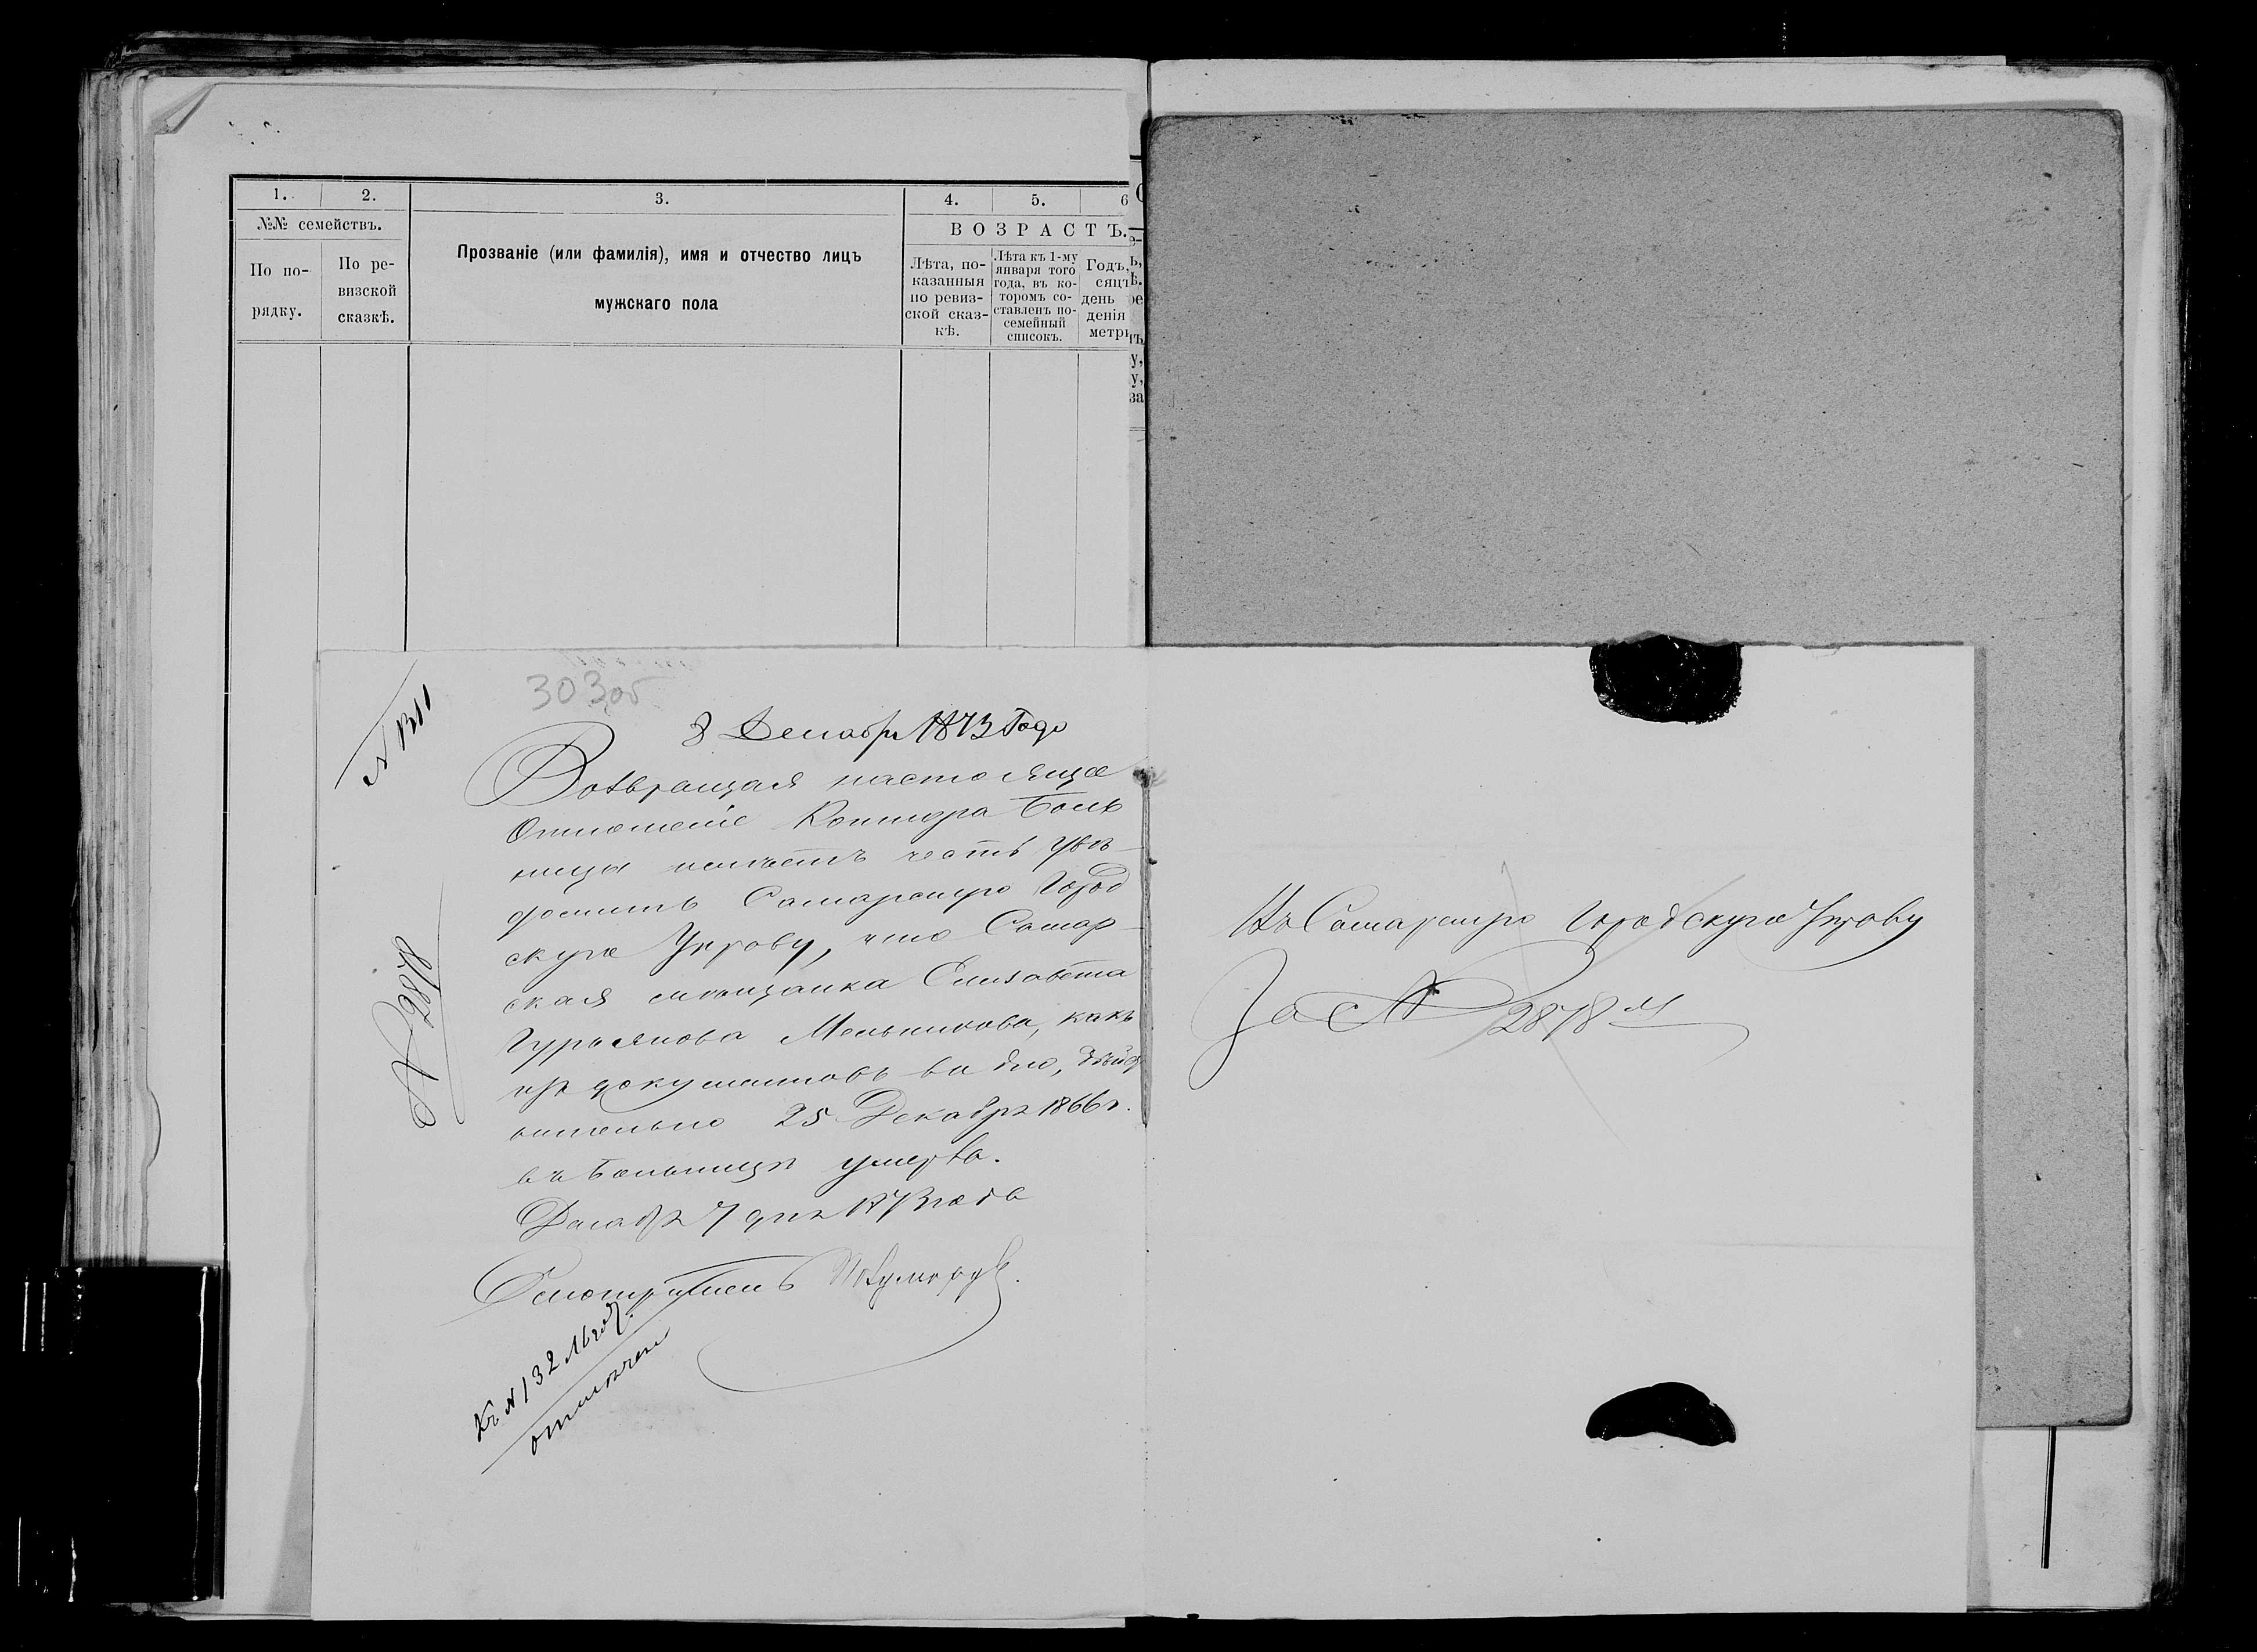 1.
2.
3.
4.
5.
6
№№ семействъ.
По по-
рядку.
По ре-
визской
сказкѣ.
Прозваніе (или фамилія), имя и отчество лицъ
мужскаго пола
ВОЗРАСТЪ.
Лѣта, по-
казанныя
по ревиз-
ской сказ-
кѣ.
Лѣта къ 1-му
января того
года, въ ко-
торомъ со-
ставленъ по-
семейный
списокъ.
Годъ,
сяцъ
день
денія
метри
303об
8 Декабря 1873 Года
Возвращая настоящее
Отношеніе Контора Боль
ницы имѣетъ честь увѣ-
домить Самарскую Город
скую Управу, что Самар-
ская мѣщанка Елизавета
Гурьянова Мельникова, какъ
изъ документовъ видно, дѣйст
вительно 25 Декабря 1866 г.
въ больницѣ умерла.
Декабря 7 дня 1873 года
Смотритель
№ 2878
Къ № 132
отмѣчен
Въ Самарскую Городскую Управу
За № 2878 м